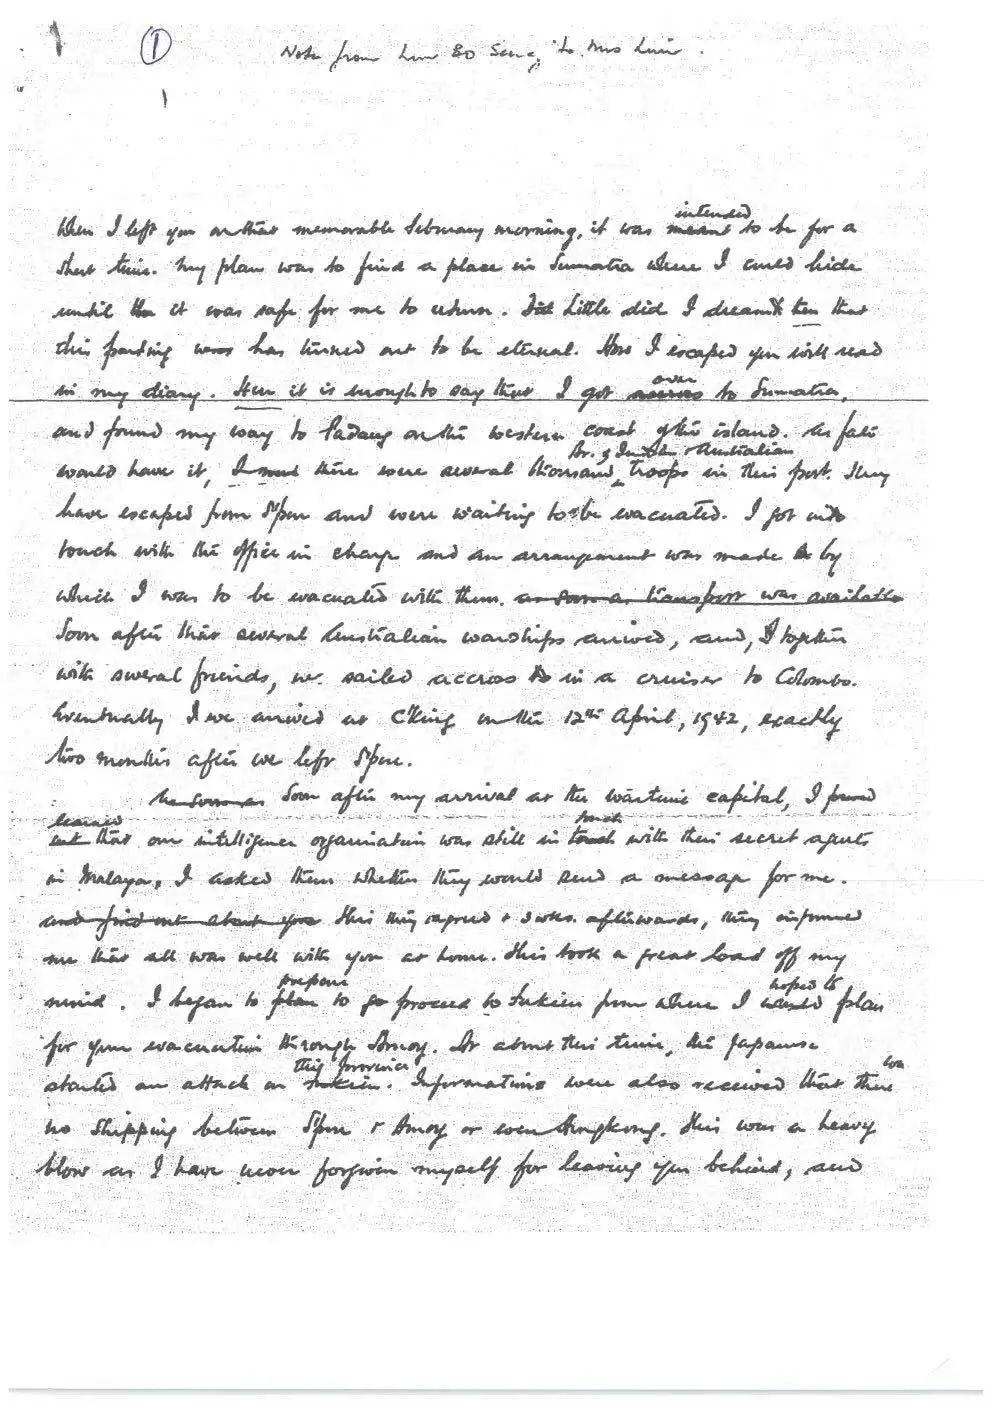 1
Note from Lim Bo Seng to Mrs Lim.
When I left you on that memorable February morning, it was meant intended to be for a
short time. My plan was to find a place in Sumatra where I could hide
until it was safe for me to return. Little did I dream then that
this parting was has turned out to be eternal. How I escaped you will read
in my diary. Here it is enough to say that I got over to Sumatra,
and found my way to Padang on the western coast of the island. As fate
would have it, there were several thousand Br. & Indian & Australian troops in this port. They
have escaped from S'pore and were waiting to be evacuated. I got into
touch with the office in charge and an arrangement was made by
which I was to be evacuated with them. as soon as transport was available
Soon after that several Australian warships arrived, and, I together
with several friends, we sailed accross in a cruiser to Colombo.
Eventually I we arrived at C'king on the 12th April, 1942, exactly
two months after we left S'pore.
Soon after my arrival at the wartime capital, I found
learned out that our intelligence organisation was still in touch with their secret agents
in Malaya, I asked them whether they would send a message for me.
and find out about you This they agreed & 3 wks. afterwards, they informed
me that all was well with you at home. This took a great load off my
mind. I began to plan prepare to go proceed to Fukien from where I would hoped to plan
for your evacuation through Amoy. At about this time, the Japanese
started an attack on Fukien this province. Informations were also received that there was
no shipping between S'pore & Amoy or even Hongkong. This was a heavy
blow as I have never forgiven myself for leaving you behind, and